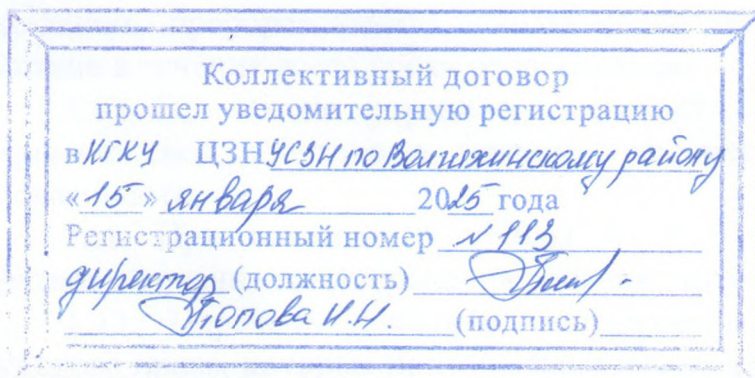 Коллективный договор
прошел уведомительную регистрацию
в КГКУ ЦЗН УСЗН по Волчихинскому району
«15» января 2025 года
Регистрационный номер № 113
директор (должность)
Попова И.Н. (подпись)